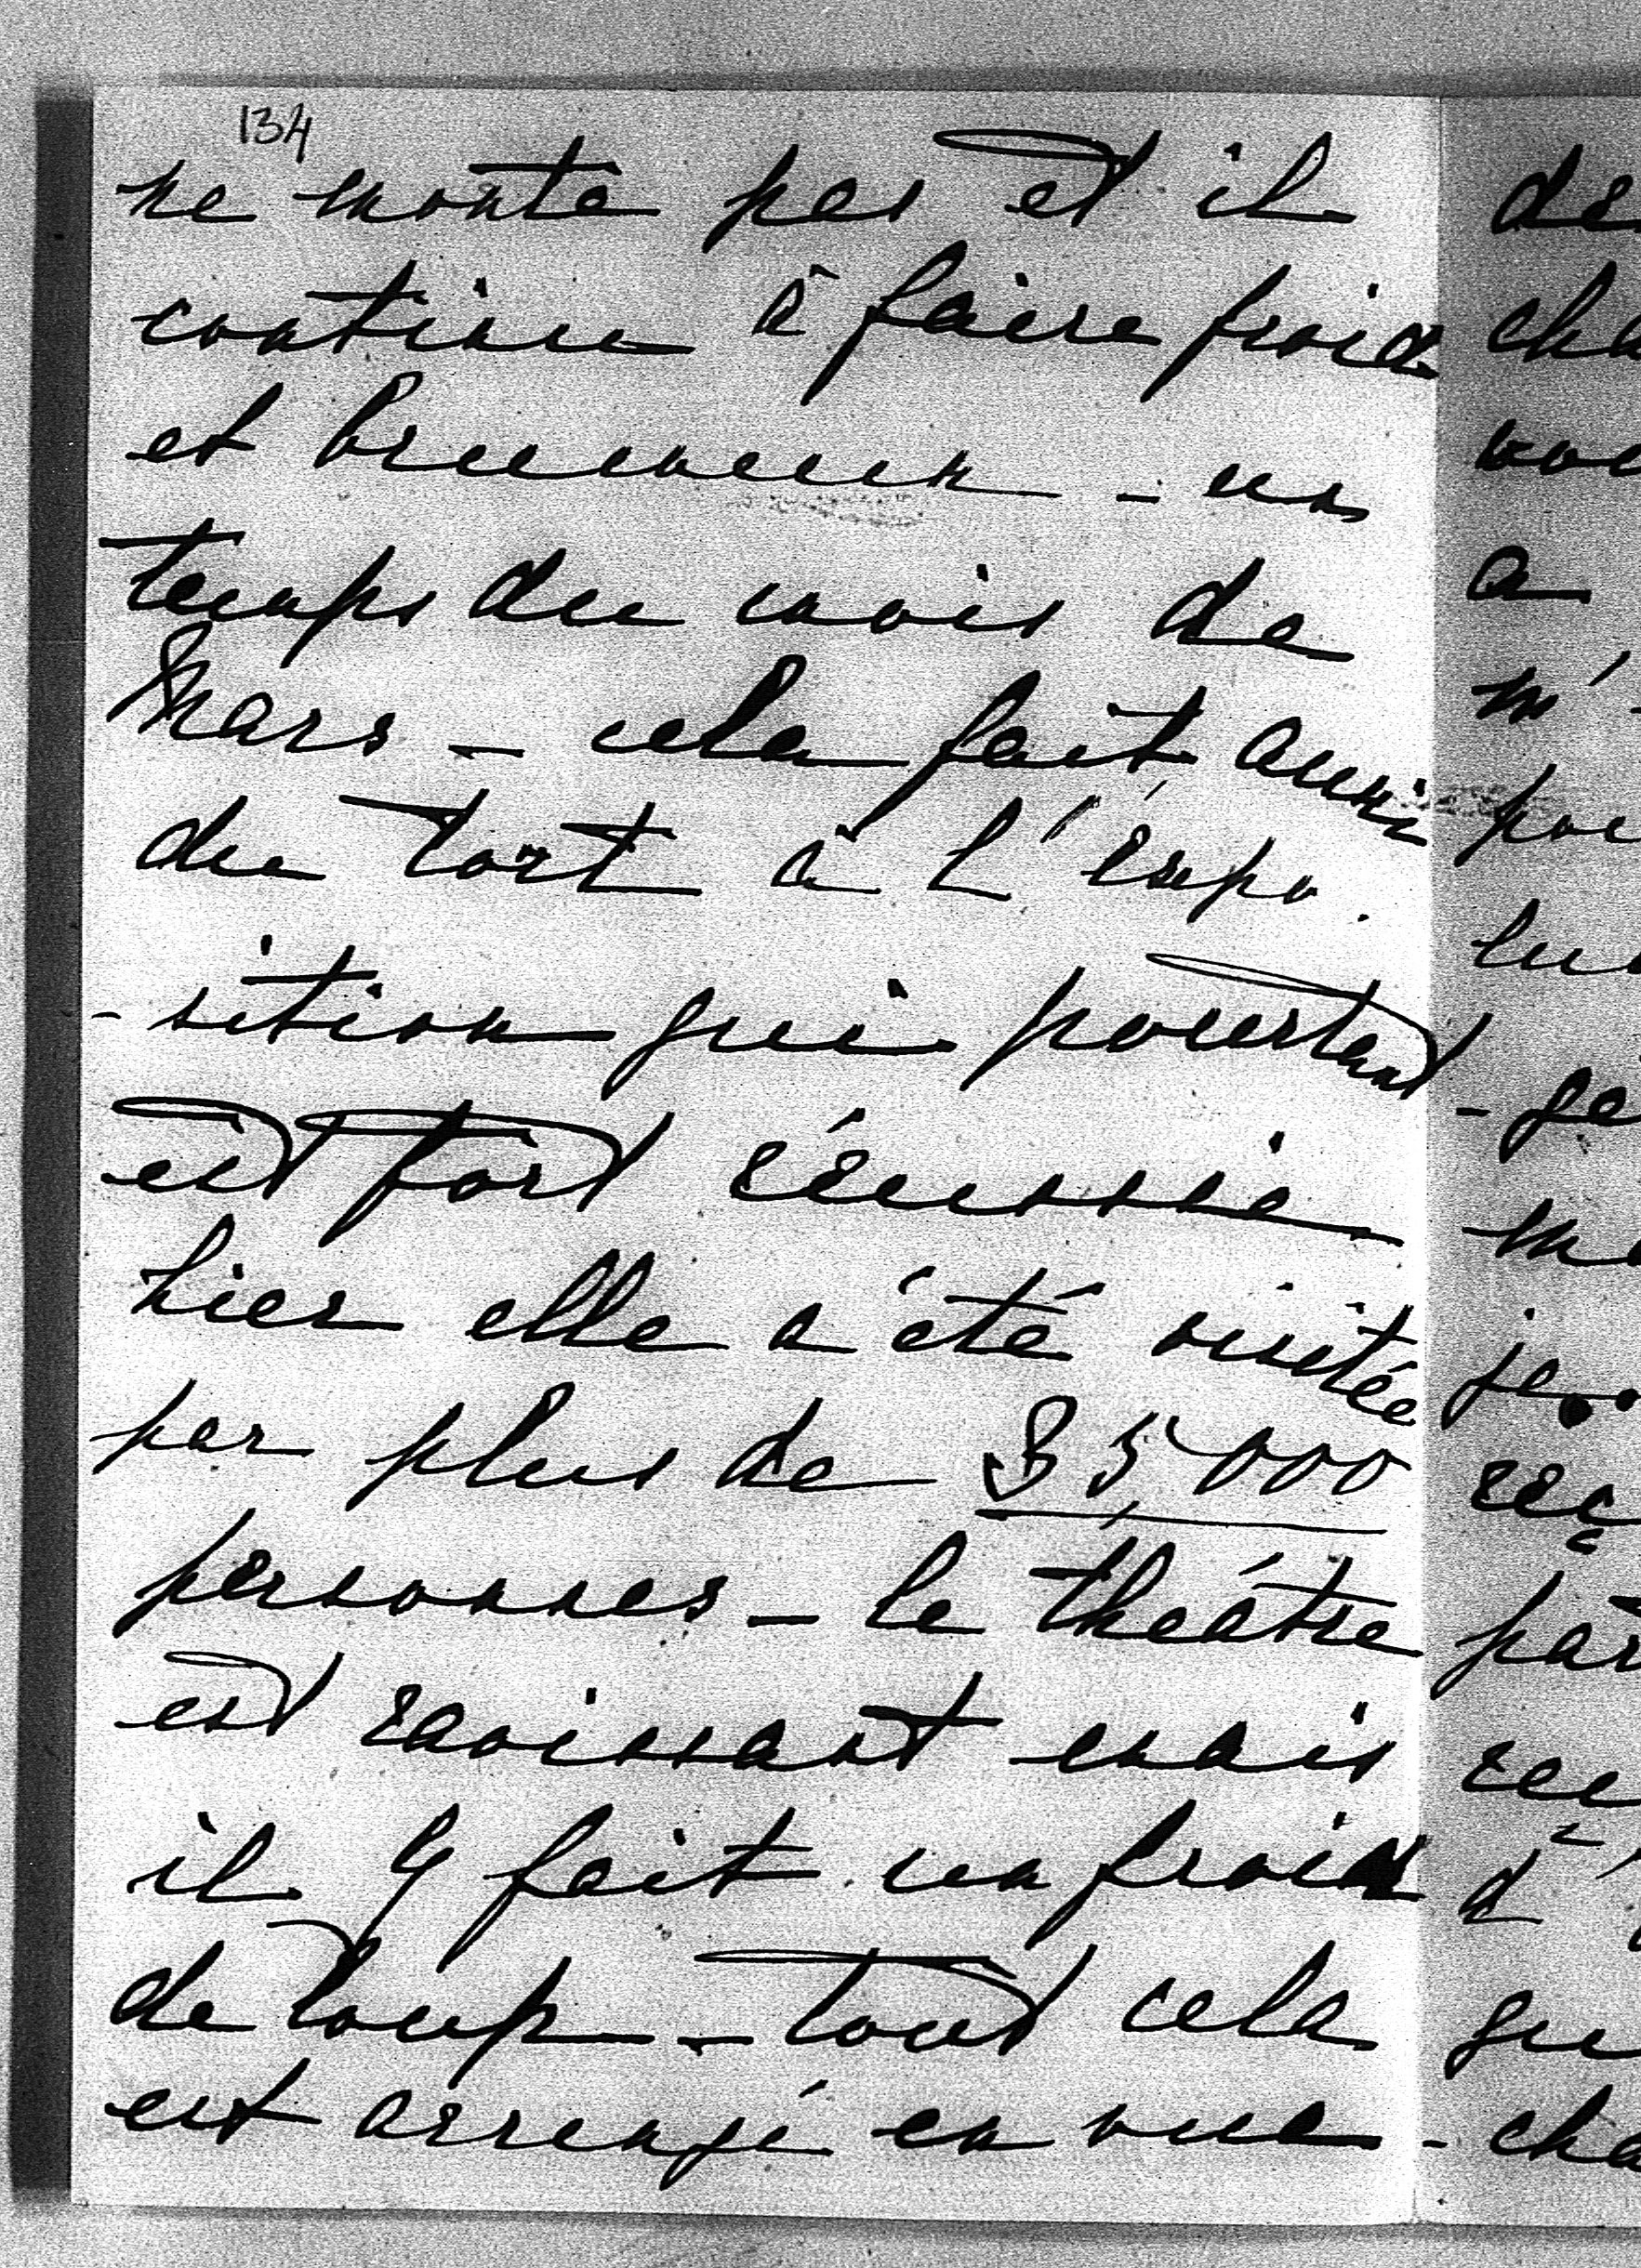 134
ne monte pas et il
continue à faire froid
et brumeux - un
temps du mois de
Mars - cela fait aussi
du tort à l'expo
-sition qui pourtant
est fort réussie
hier elle a été visitée
par plus de 35000
personnes - le théâtre
est ravissant mais
il y fait un froid
de loup - tout cela
est arrangé en vue